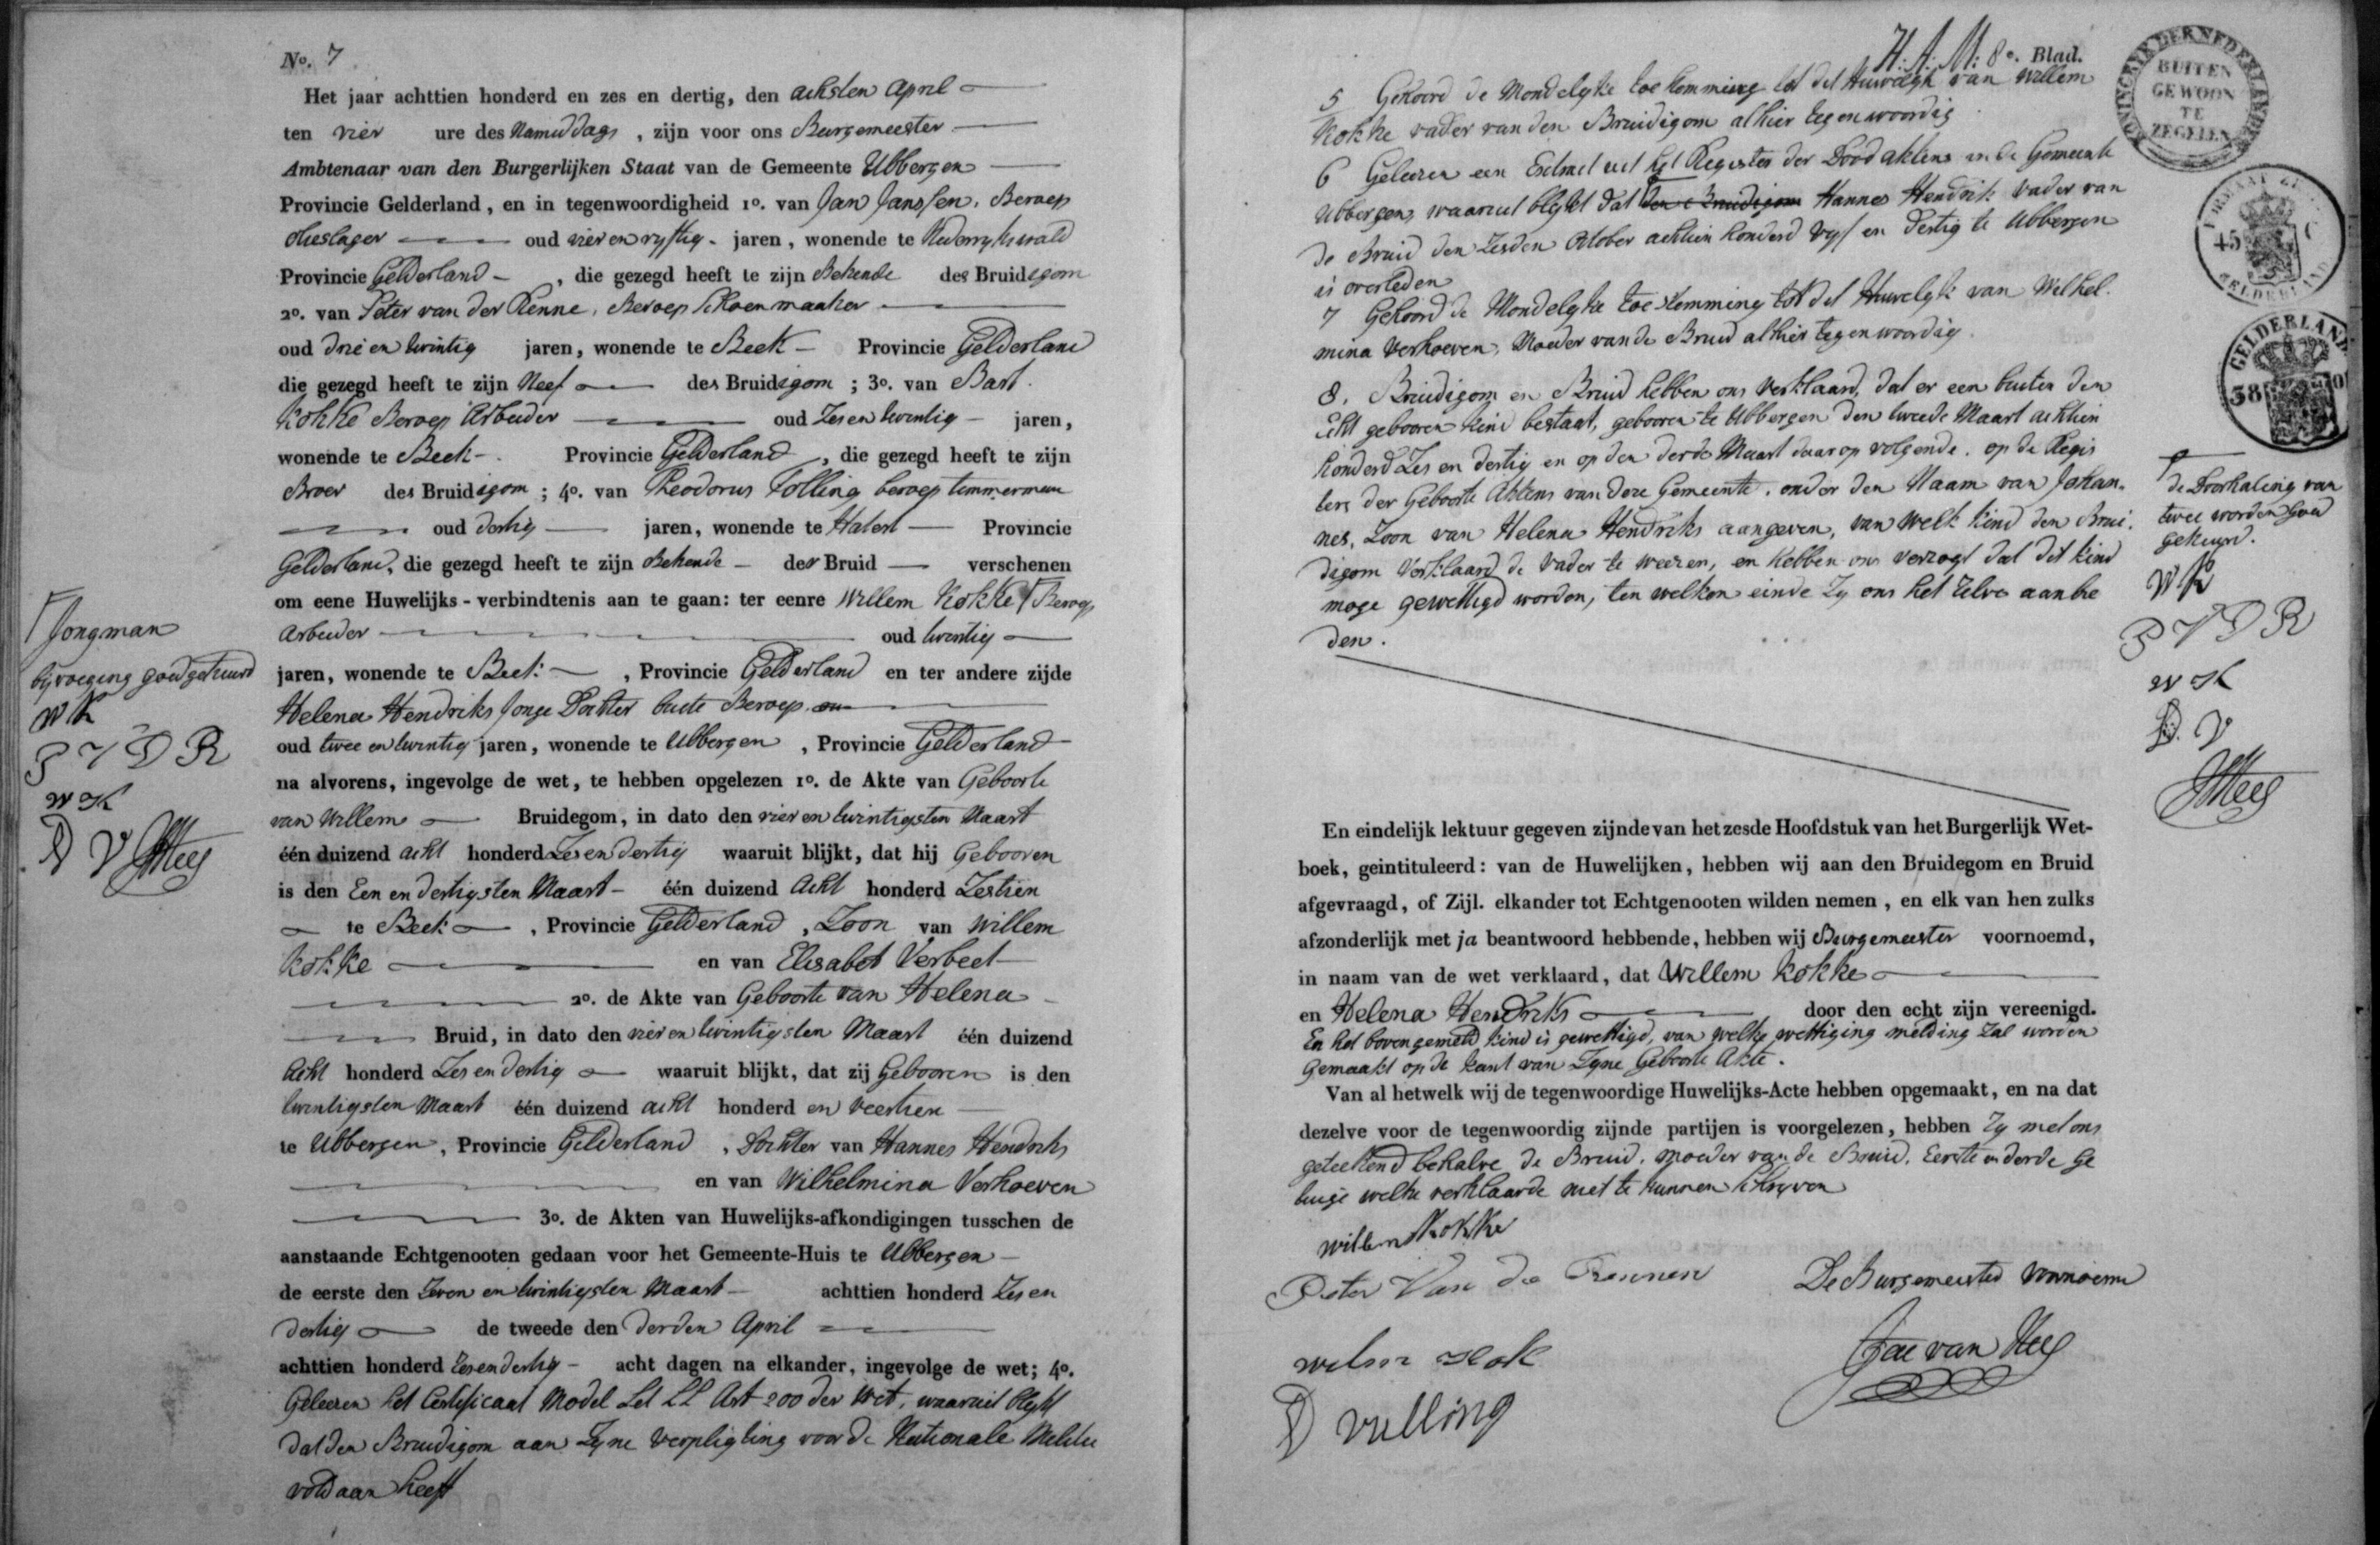 No. 7
Het jaar achttien honderd en zes en dertig, den achsten April
ten vier ure des Namiddags, zijn voor ons Burgemeester
Ambtenaar van den Burgerlijken Staat van de Gemeente Ubbergen
Provincie Gelderland, en in tegenwoordigheid 1o. van Jan Janssen, Beroep
olieslager oud vier en vyftig jaren, wonende te Nederrykswald
Provincie Gelderland, die gezegd heeft te zijn Bekende des Bruidigom
2o. van Peter van der Renne, Beroep Schoenmaaker
oud drie en twintig jaren, wonende te Beek Provincie Gelderland
die gezegd heeft te zijn Neef des Bruidigom; 3o. van Bart
Kokke Beroep Arbeider oud Zes en twintig jaren,
wonende te Beek Provincie Gelderland, die gezegd heeft te zijn
Broer des Bruidigom; 4o. van Theodorus Folling beroep timmerman
oud dertig jaren, wonende te Hatert Provincie
Gelderland, die gezegd heeft te zijn Bekende der Bruid verschenen
om eene Huwelijks-verbindtenis aan te gaan: ter eenre Willem Kokke Beroep
Arbeider oud twintig
jaren, wonende te Beek, Provincie Gelderland en ter andere zijde
Helena Hendriks Jonge Dochter buete Beroep
oud twee en twintig jaren, wonende te Ubbergen, Provincie Gelderland
na alvorens, ingevolge de wet, te hebben opgelezen 1o. de Akte van Geboorte
van Willem Bruidegom, in dato den vier en twintigsten Maart
één duizend acht honderd Zes en dertig waaruit blijkt, dat hij Gebooren
is den Een en dertigsten Maart één duizend Acht honderd Zestien
te Beek, Provincie Gelderland, Zoon van Willem
Kokke en van Elisabet Verbeet
2o. de Akte van Geboorte van Helena
Bruid, in dato den vier en twintigsten Maart één duizend
Acht honderd Zes en dertig waaruit blijkt, dat zij Gebooren is den
twintigsten Maart één duizend acht honderd en veertien
te Ubbergen, Provincie Gelderland, Dochter van Hannes Hendriks
en van Wilhelmina Verhoeven
3o. de Akten van Huwelijks-afkondigingen tusschen de
aanstaande Echtgenooten gedaan voor het Gemeente-Huis te Ubbergen
de eerste den Zeven en twintigsten Maart achttien honderd Zes en
dertig de tweede den derden April
achttien honderd Zes en dertig acht dagen na elkander, ingevolge de wet; 4o.
Geleezen het Certificaat Model Let LL Art 200 der Wet, waaruit blykt
dat den Bruidigom aan Zyne verpligting voor de Nationale Militie
voldaan heeft
Jongman
bijvoeging goedgekeurd
WK
P V D R
W K
D V JVHees
H: A: M: 8e. Blad.
5 Gehoord de Mondelyke toestemming tot det Huwelyk van Willem
Kokke vader van den Bruidigom alhier tegenwoordig
6 Geleezen een Extract uit het Register der Dood aktens in de Gemeente
Ubbergen, waaruit blykt dat den Bruidigom Hannes Hendrik vader van
de Bruid den Zesden October achtien honderd vyf en dertig te Ubbergen
is overleden
7 Gehoord de Mondelyke toestemming tot det Huwelyk van Wilhel-
mina Verhoeven, Moeder van de Bruid alhier tegenwoordig.
8. Bruidigom en Bruid hebben ons Verklaard, dat er een buiten den
Echt gebooren kind bestaat, gebooren te Ubbergen den tweede Maart achtien
honderd Zes en dertig en op den derde Maart daar op volgende. op de Regis
ters der Geboorte Aktens van deze Gemeente, onder den Naam van Johan-
nes, Zoon van Helena Hendriks aangeven, van Welk kind den Brui-
digom Verklaard de vader te weezen, en hebben ons verzogt dat dit kind
moge gewettigd worden, ten welken einde Zy ons het Zelve aanbe
den.
de doorhaling van
twee worden goed
gekeurd.
WK
P V D R
W K
D. V
JVHees
En eindelijk lektuur gegeven zijnde van het zesde Hoofdstuk van het Burgerlijk Wet-
boek, geintituleerd: van de Huwelijken, hebben wij aan den Bruidegom en Bruid
afgevraagd, of Zijl. elkander tot Echtgenooten wilden nemen, en elk van hen zulks
afzonderlijk met ja beantwoord hebbende, hebben wij Burgemeester voornoemd,
in naam van de wet verklaard, dat Willem Kokke
en Helena Hendriks door den echt zijn vereenigd.
En het bovengemeld kind is gewettigd, van welke wettiging melding zal worden
gemaakt op de kant van Zyne Geboorte Akte.
Van al hetwelk wij de tegenwoordige Huwelijks-Acte hebben opgemaakt, en na dat
dezelve voor de tegenwoordig zijnde partijen is voorgelezen, hebben Zy met ons
geteekend behalve de Bruid, moeder van de Bruid, Eerste en derde Ge
tuige welke verklaarde niet te kunnen schryven
willem Kokke
Peter Van de Rennen
De Burgemeester voornoemd
wilm kok
van Hees
D vulling
KONINGRIJK DER NEDERLANDEN
BUITEN
GEWOON
TE
ZEGELEN
45
GELDERLAND
GELDERLAND
38